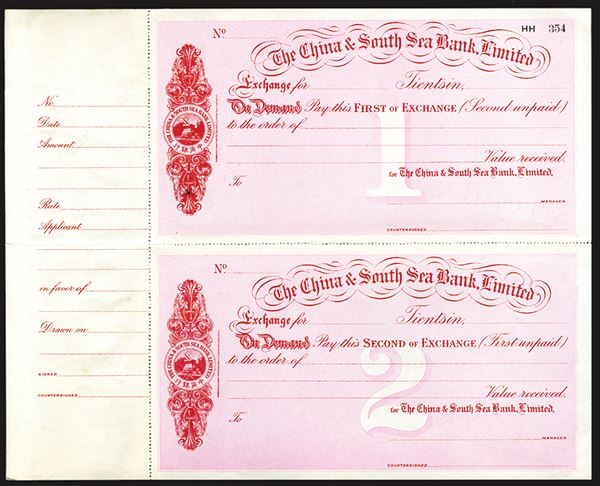 No.
Date
Amount
Rate
Applicant
in favor of
Drawn on
SIGNED
COUNTERSIGNED
No
HH 354
The China & South Sea Bank, Limited
Exchange for Tientsin,
On Demand Pay this FIRST OF EXCHANGE (Second unpaid)
to the order of
Value received.
To for The China & South Sea Bank, Limited.
MANAGER
COUNTERSIGNED
1
THE CHINA & SOUTH SEA BANK LIMITED
行銀南中
No
The China & South Sea Bank, Limited
Exchange for Tientsin,
On Demand Pay this SECOND OF EXCHANGE (First unpaid)
to the order of
Value received.
To for The China & South Sea Bank, Limited.
MANAGER
COUNTERSIGNED
2
THE CHINA & SOUTH SEA BANK LIMITED
行銀南中